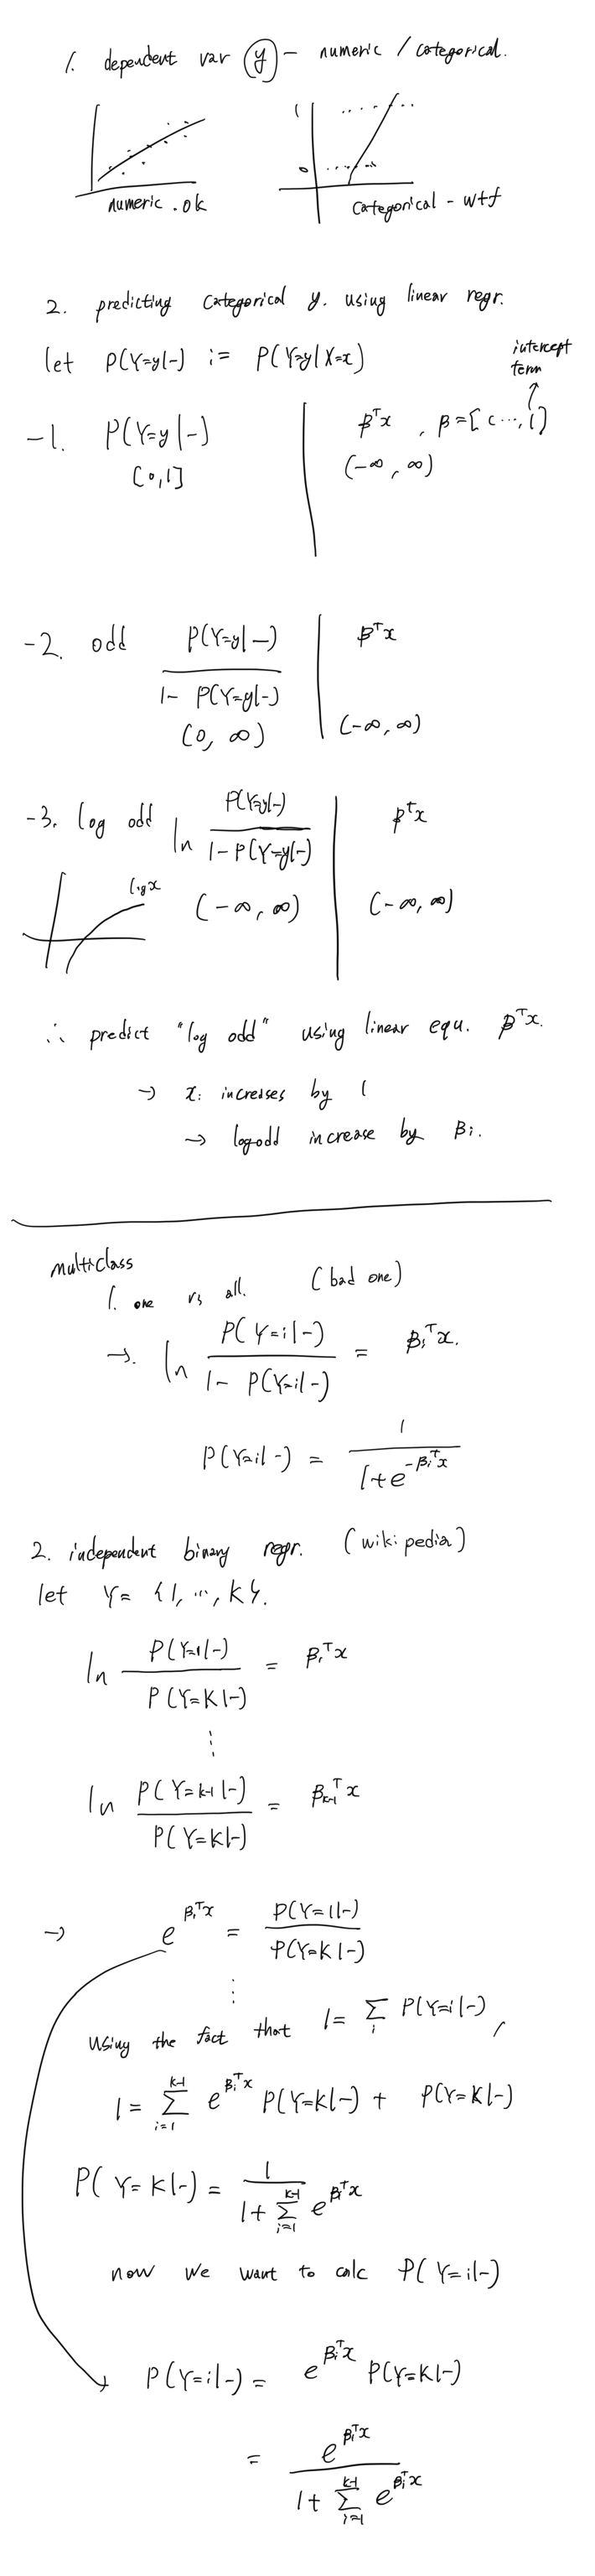 1. dependent var y - numeric / categorical.
1
0
numeric . ok
categorical - wtf
2. predicting categorical y. using linear regr.
let P(Y=y|-) := P(Y=y|X=x)
intercept
term
-1. P(Y=y|-) βᵀx , β=[ c ..., 1]
[0,1] (-∞, ∞)
-2. odd P(Y=y|-) βᵀx
1- P(Y=y|-)
(0, ∞) (-∞, ∞)
-3. log odd ln P(Y=y|-) βᵀx
1-P(Y=y|-)
logx (-∞, ∞) (-∞, ∞)
∴ predict "log odd" using linear equ. βᵀx.
→ xᵢ increases by 1
→ logodd increase by βᵢ.
multiclass
1. one vs all. (bad one)
→. ln P(Y=i|-) = βᵢᵀx.
1- P(Y=i|-)
P(Y=i|-) = 1
1+e^-βᵢᵀx
2. independent binary regr. (wikipedia)
let Y= {1, ..., K}.
ln P(Y=1|-) = β₁ᵀx
P(Y=K|-)
⋮
ln P(Y=k-1|-) = βₖ₋₁ᵀx
P(Y=K|-)
→ e^β₁ᵀx = P(Y=1|-)
P(Y=K|-)
⋮
Using the fact that 1= Σᵢ P(Y=i|-) ,
1= Σ_{i=1}^{k-1} e^βᵢᵀx P(Y=K|-) + P(Y=K|-)
P(Y=K|-) = 1
1+ Σ_{i=1}^{k-1} e^βᵢᵀx
now we want to calc P(Y=i|-)
P(Y=i|-) = e^βᵢᵀx P(Y=K|-)
= e^βᵢᵀx
1+ Σ_{i=1}^{k-1} e^βᵢᵀx